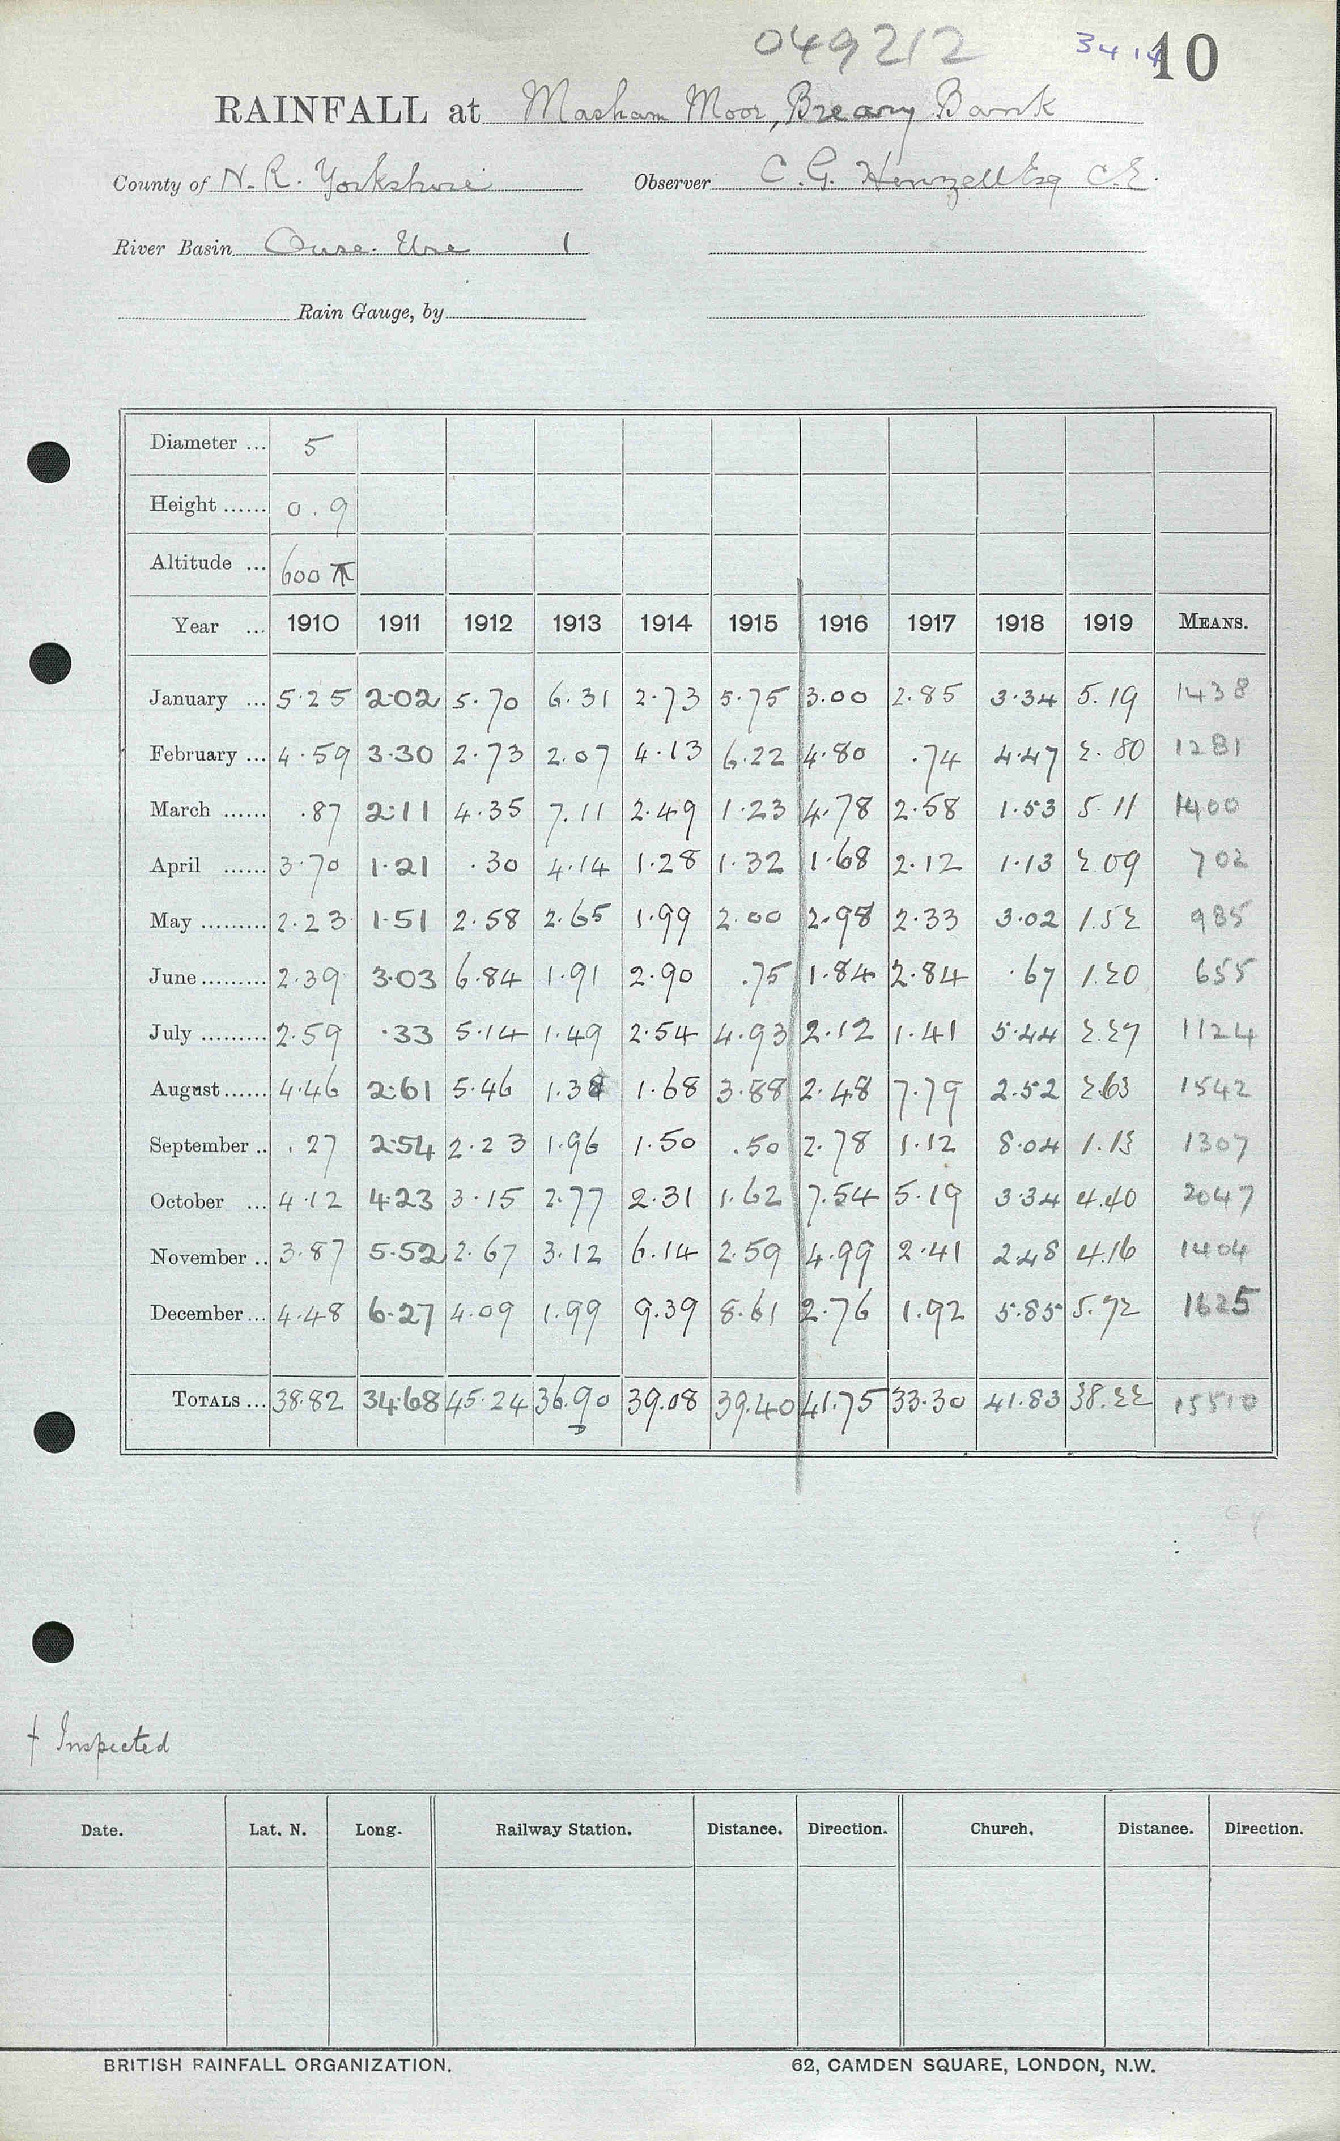 049212 3414 10
RAINFALL at Masham Moor, Breary Bank
County of N. R. Yorkshire Observer C. G. Henzell Esq C.E.
River Basin Ouse. Ure 1
Rain Gauge, by
Diameter ... 5
Height ...... 0.9
Altitude ... 600
Year ... 1910 1911 1912 1913 1914 1915 1916 1917 1918 1919 MEANS.
January ... 5.25 2.02 5.70 6.31 2.73 5.75 3.00 2.85 3.34 5.19 1438
February ... 4.59 3.30 2.73 2.07 4.13 6.22 4.80 .74 4.47 2.80 1281
March ...... .87 2.11 4.35 7.11 2.49 1.23 4.78 2.58 1.53 5.11 1400
April ...... 3.70 1.21 .30 4.14 1.28 1.32 1.68 2.12 1.13 2.09 702
May ......... 2.23 1.51 2.58 2.65 1.99 2.00 2.98 2.33 3.02 1.52 985
June ......... 2.39 3.03 6.84 1.91 2.90 .75 1.84 2.84 .67 1.20 655
July ......... 2.59 .33 5.14 1.49 2.54 4.93 2.12 1.41 5.44 2.27 1124
August ...... 4.46 2.61 5.46 1.38 1.68 3.88 2.48 7.79 2.52 2.63 1542
September .. .27 2.54 2.23 1.96 1.50 .50 2.78 1.12 8.04 1.13 1307
October ... 4.12 4.23 3.15 2.77 2.31 1.62 7.54 5.19 3.34 4.40 2047
November .. 3.87 5.52 2.67 3.12 6.14 2.59 4.99 2.41 2.48 4.16 1404
December ... 4.48 6.27 4.09 1.99 9.39 8.61 2.76 1.92 5.85 5.72 1625
TOTALS ... 38.82 34.68 45.24 36.90 39.08 39.40 41.75 33.30 41.83 38.22 15510
† Inspected
Date. Lat. N. Long. Railway Station. Distance. Direction. Church. Distance. Direction.
BRITISH RAINFALL ORGANIZATION. 62, CAMDEN SQUARE, LONDON, N.W.